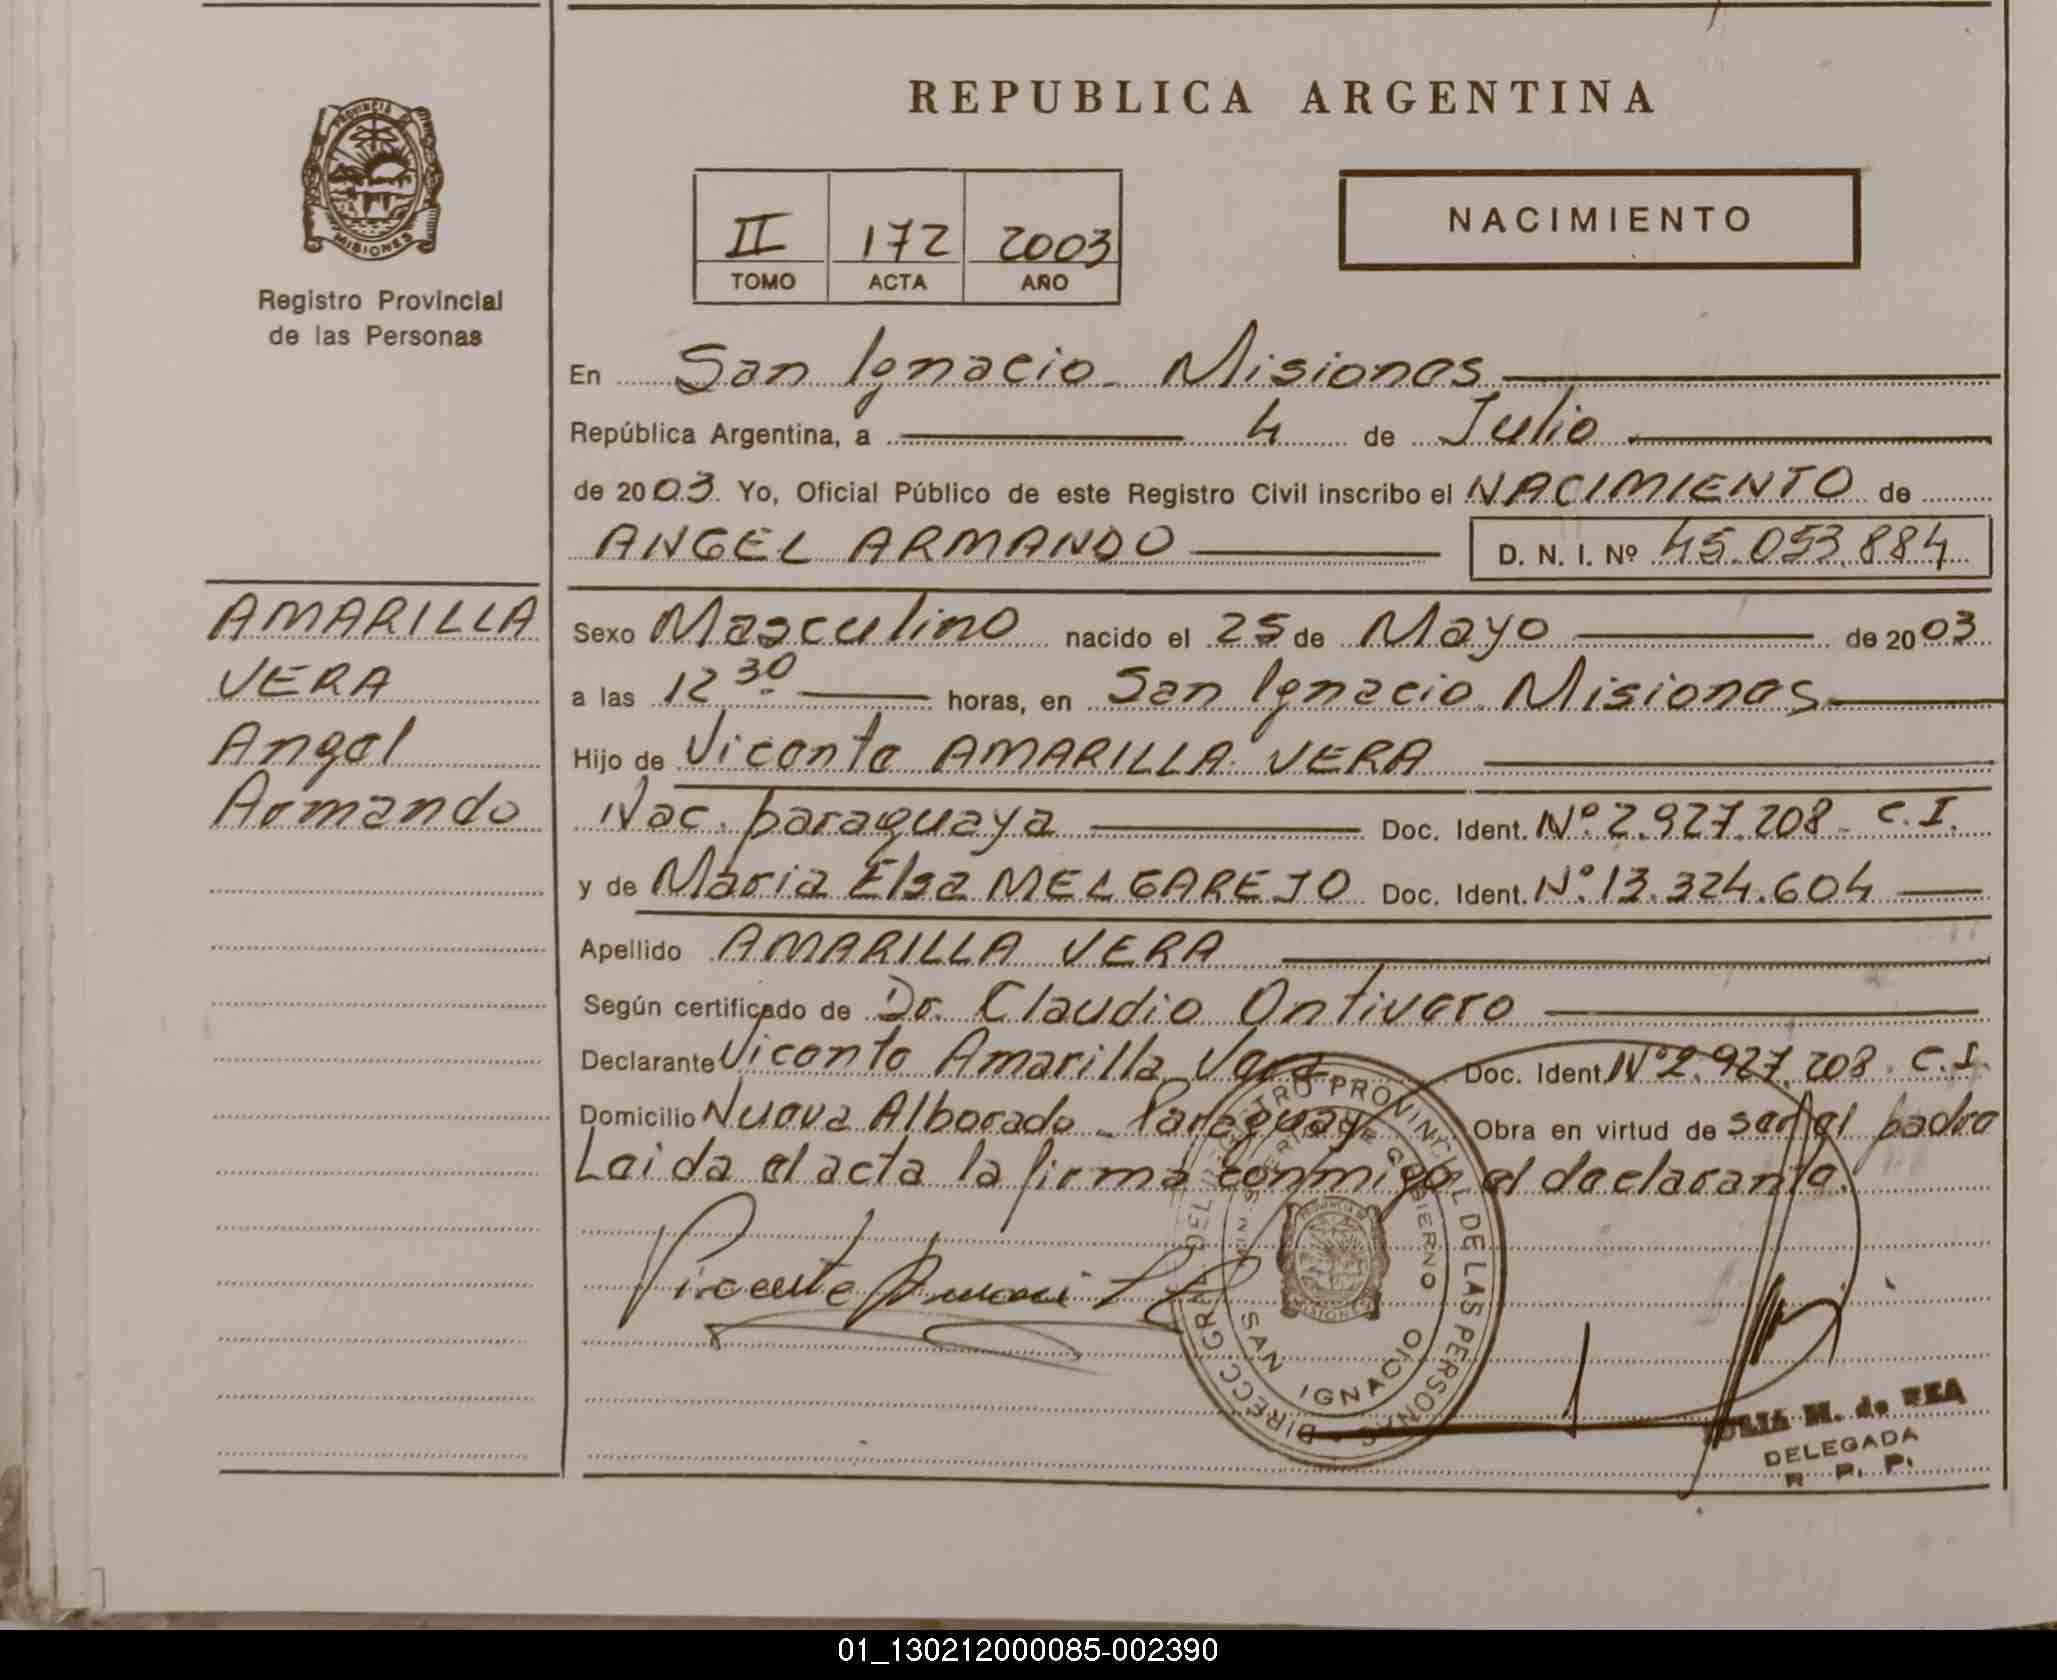 REPUBLICA ARGENTINA
PROVINCIA DE
MISIONES
Registro Provincial
de las Personas
II 172 2003
TOMO ACTA AÑO
NACIMIENTO
En San Ignacio - Misiones
República Argentina, a 4 de Julio
de 2003. Yo, Oficial Público de este Registro Civil inscribo el NACIMIENTO de
ANGEL ARMANDO D. N. I. Nº 45.053.884
AMARILLA
VERA
Angel
Armando
Sexo Masculino nacido el 25 de Mayo de 2003
a las 12 30 horas, en San Ignacio. Misiones
Hijo de Vicente AMARILLA VERA
Nac. paraguaya Doc. Ident. Nº 2.927.208 - C.I.
y de Maria Elsa MELGAREJO Doc. Ident. Nº 13.324.604
Apellido AMARILLA VERA
Según certificado de Dr. Claudio Ontivero
Declarante Vicente Amarilla Vera Doc. Ident. Nº 2.927.208. C.I.
Domicilio Nueva Alborada - Paraguay Obra en virtud de ser el padre
Leida el acta la firma conmigo el declarante.
Vicente Amarilla
DIRECC. GRAL. DEL REGISTRO PROVINCIAL DE LAS PERSONAS
MINISTERIO DE GOBIERNO
PROVINCIA DE
MISIONES
SAN IGNACIO
JULIA M. de REA
DELEGADA
R. P. P.
01_130212000085-002390